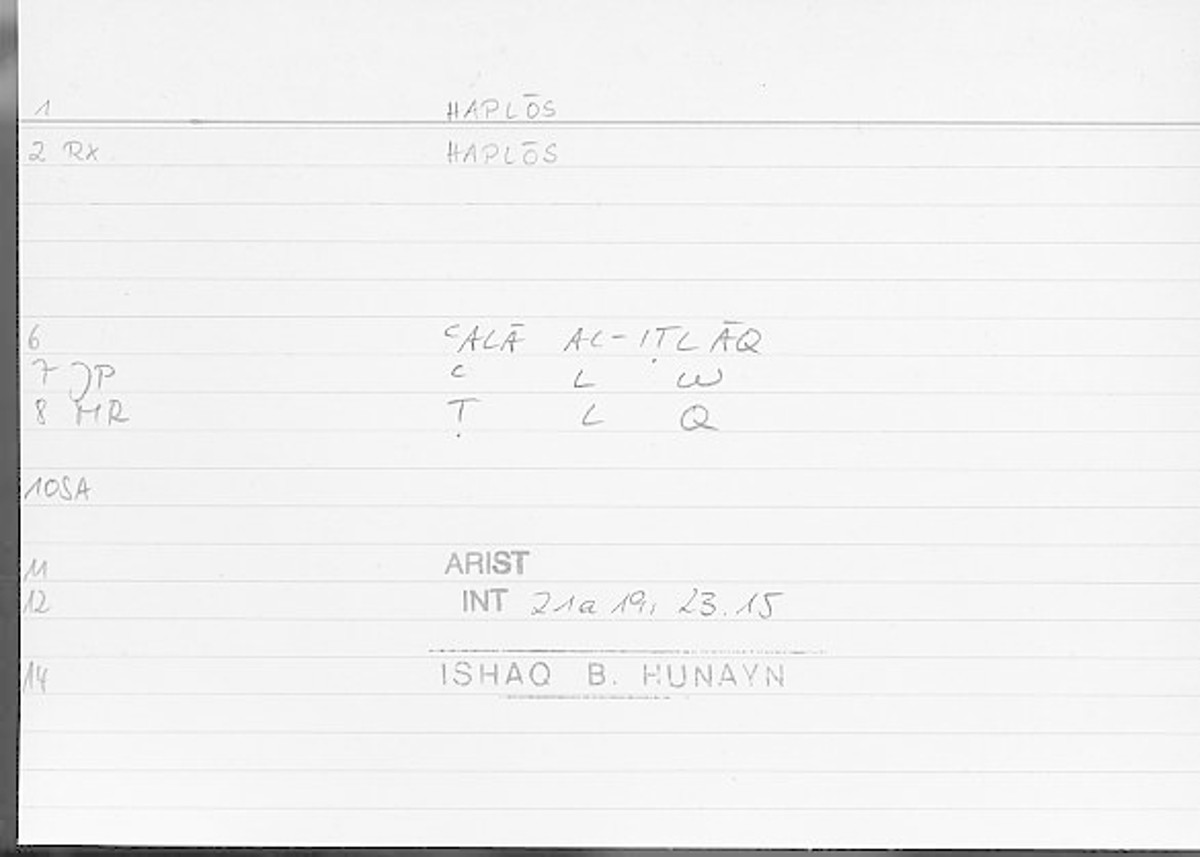 1 HAPLŌS
2 RX HAPLŌS
6 ᶜALĀ AL-IṬLĀQ
7 JP ᶜ L W
8 MR Ṭ L Q
10SA
11 ARIST
12 INT 21a 19; 23.15
14 ISHAQ B. HUNAYN